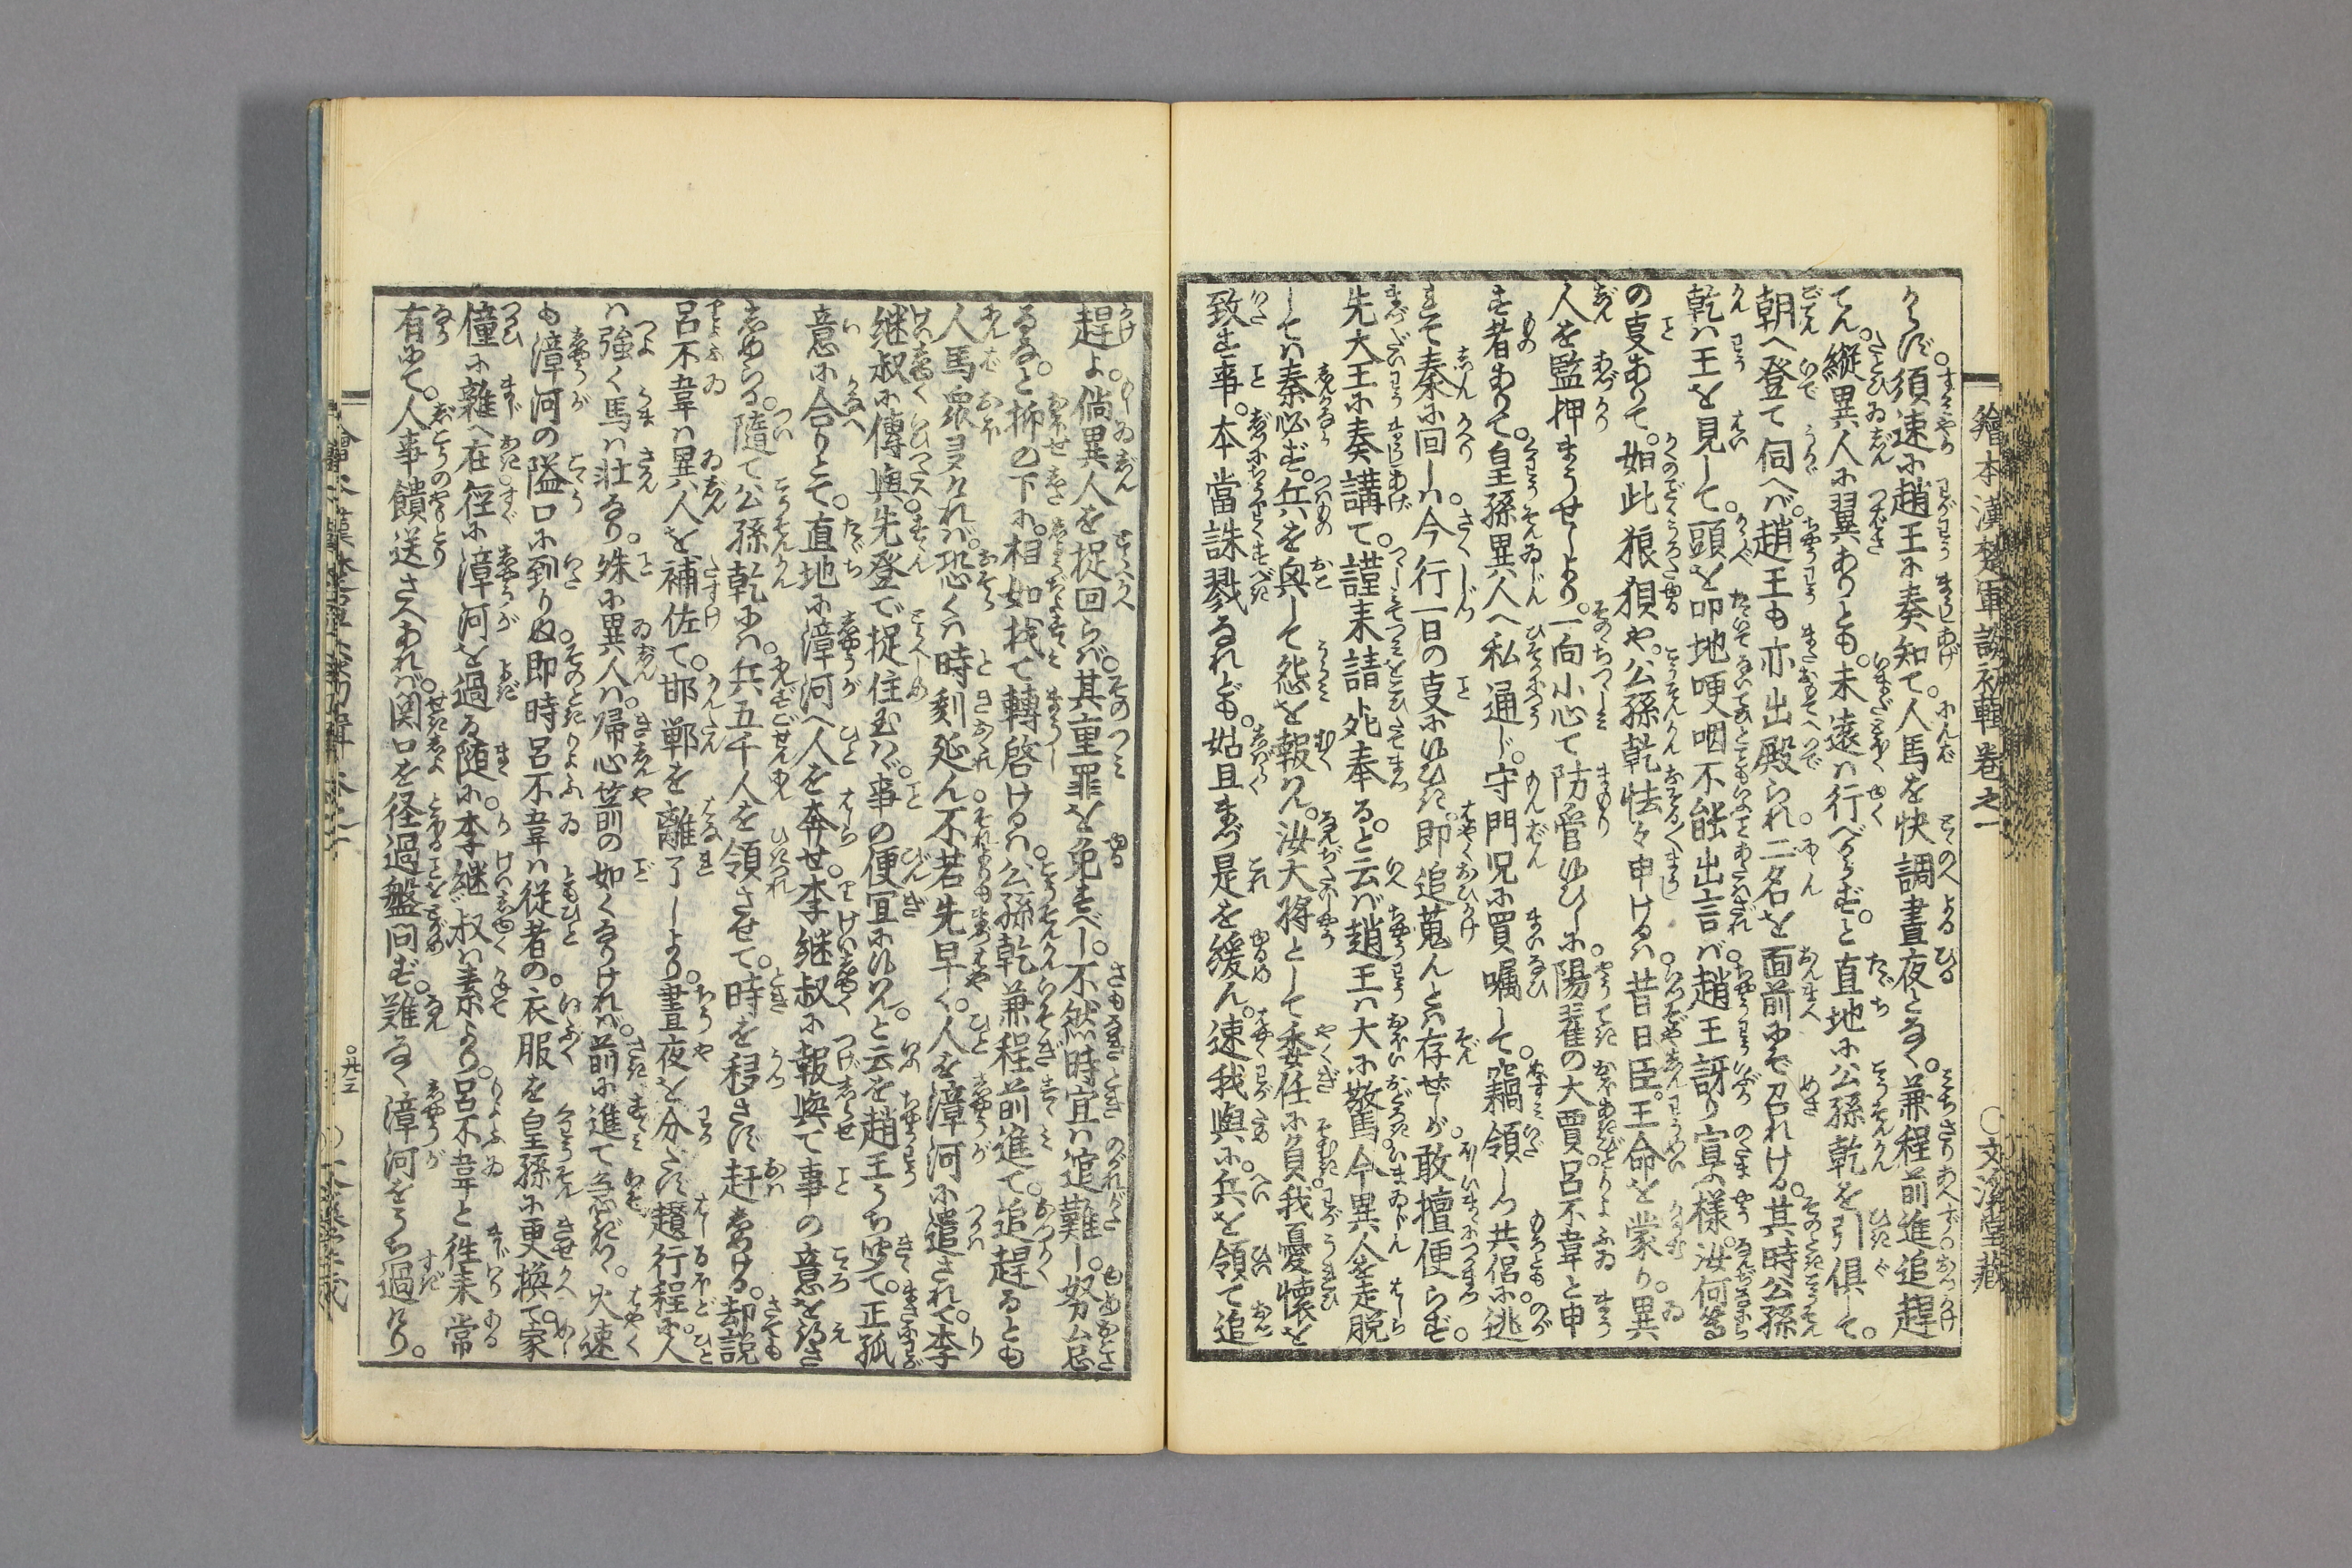 繪本漢楚軍談初輯巻之一
○文溪堂藏
らず。須速に趙王に奏知て。人馬を快調晝夜となく。兼程前進追趕
てん。縦異人に翼ありとも。未遠は行べからず。と直地に公孫乾を引倶して。
朝へ登て伺へば。趙王も亦出殿られ二名を面前にぞ召れける。其時公孫
乾は王を見して。頭を叩地哽咽不能出言ば。趙王訝り宣ふ様。汝何等
の叓ありて。如此狼狽や。公孫乾怯々申けるは昔日臣。王命を蒙り。異
人を監押まうせしより。一向小心て防管ゆひしに。陽翟の大賈。呂不韋と申
す者ありて。皇孫異人へ私通じ。守門児に買嘱して。竊領しつ共侶に逃
まぞ秦に回しは。今行一日の叓にゆひき。即追蒐んとは存ぜしが。敢擅便らず。
先大王に奏講て。謹来請死奉ると云ば。趙王は大に驚。今異人を走脱
しては秦必ず。兵を與して怨を報はん。汝大將として委任に負。我憂懐を
致す事。本當誅戮なれども。姑且まづ是を緩ん。速我與に。兵を領て追
趕よ。倘異人を捉回らば。其重罪を免すべし。不然時宜は逭難し。努厶忘
るなと拆の下に。相如找て轉啓けるは公孫乾兼程前進て。追趕るとも
人馬衆多なれば。恐くは時刻延ん不若先早く。人を漳河に遣されて。李
継叔に傳與。先登で捉住玉はゞ。事の便宜にゆはん。と云を趙王うち聴て。正孤
意に合りとて。直地に漳河へ人を奔せ。李継叔に報與て事の意を得さ
しめらる。隨て公孫乾には。兵五千人を領させて。時を移さず赶しめける。却説
呂不韋は異人を補佐て。邯鄲を離了しより。晝夜を分たず趲行程に。人
は強く馬は壮なり。殊に異人は。帰心箭の如くなりければ。前に進て急ぎつ。火速
も漳河の隘口に到りぬ。即時呂不韋は従者の。衣服を皇孫に更換て。家
僮に雑へ在徑に漳河を過る。随に。李継叔は素より。呂不韋と徃来常
有にて。人事饋送さへあれば。関口を径過盤問ず。難なく漳河をうち過けり。
○廿三